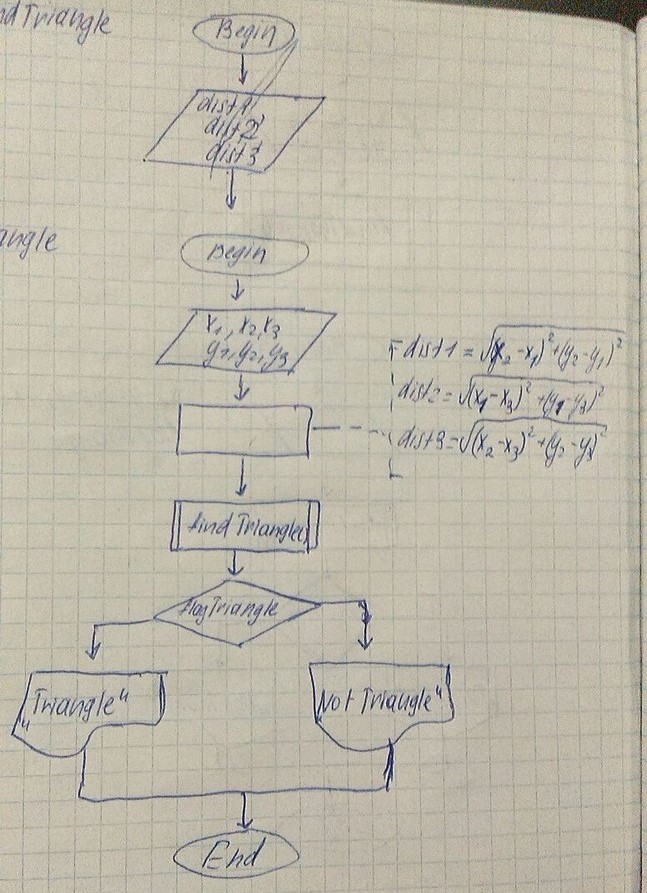 nd Triangle
Begin
dist1
dist2
dist3
angle
Begin
x1, x2, x3
y1, y2, y3
dist1 = √(x2-x1)²+(y2-y1)²
dist2 = √(x1-x3)²+(y1-y3)²
dist3 = √(x2-x3)²+(y2-y3)²
find Triangle()
flagTriangle
"Triangle"
Not Triangle"
End